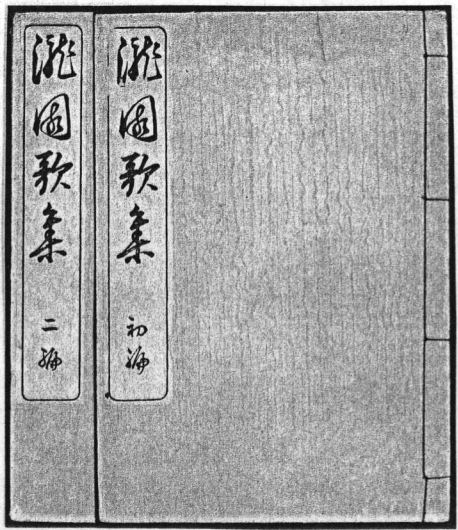 瀧園歌集 初編
瀧園歌集 二編